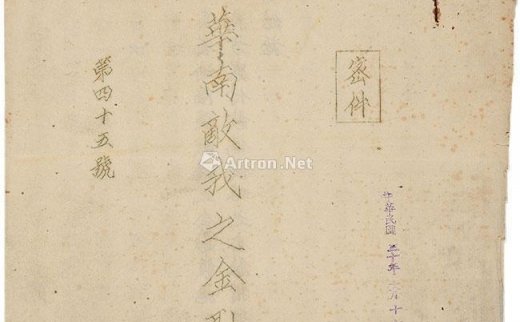 密件
中華民國三十年
華南敵我之金
第四十五號
Artron.Net